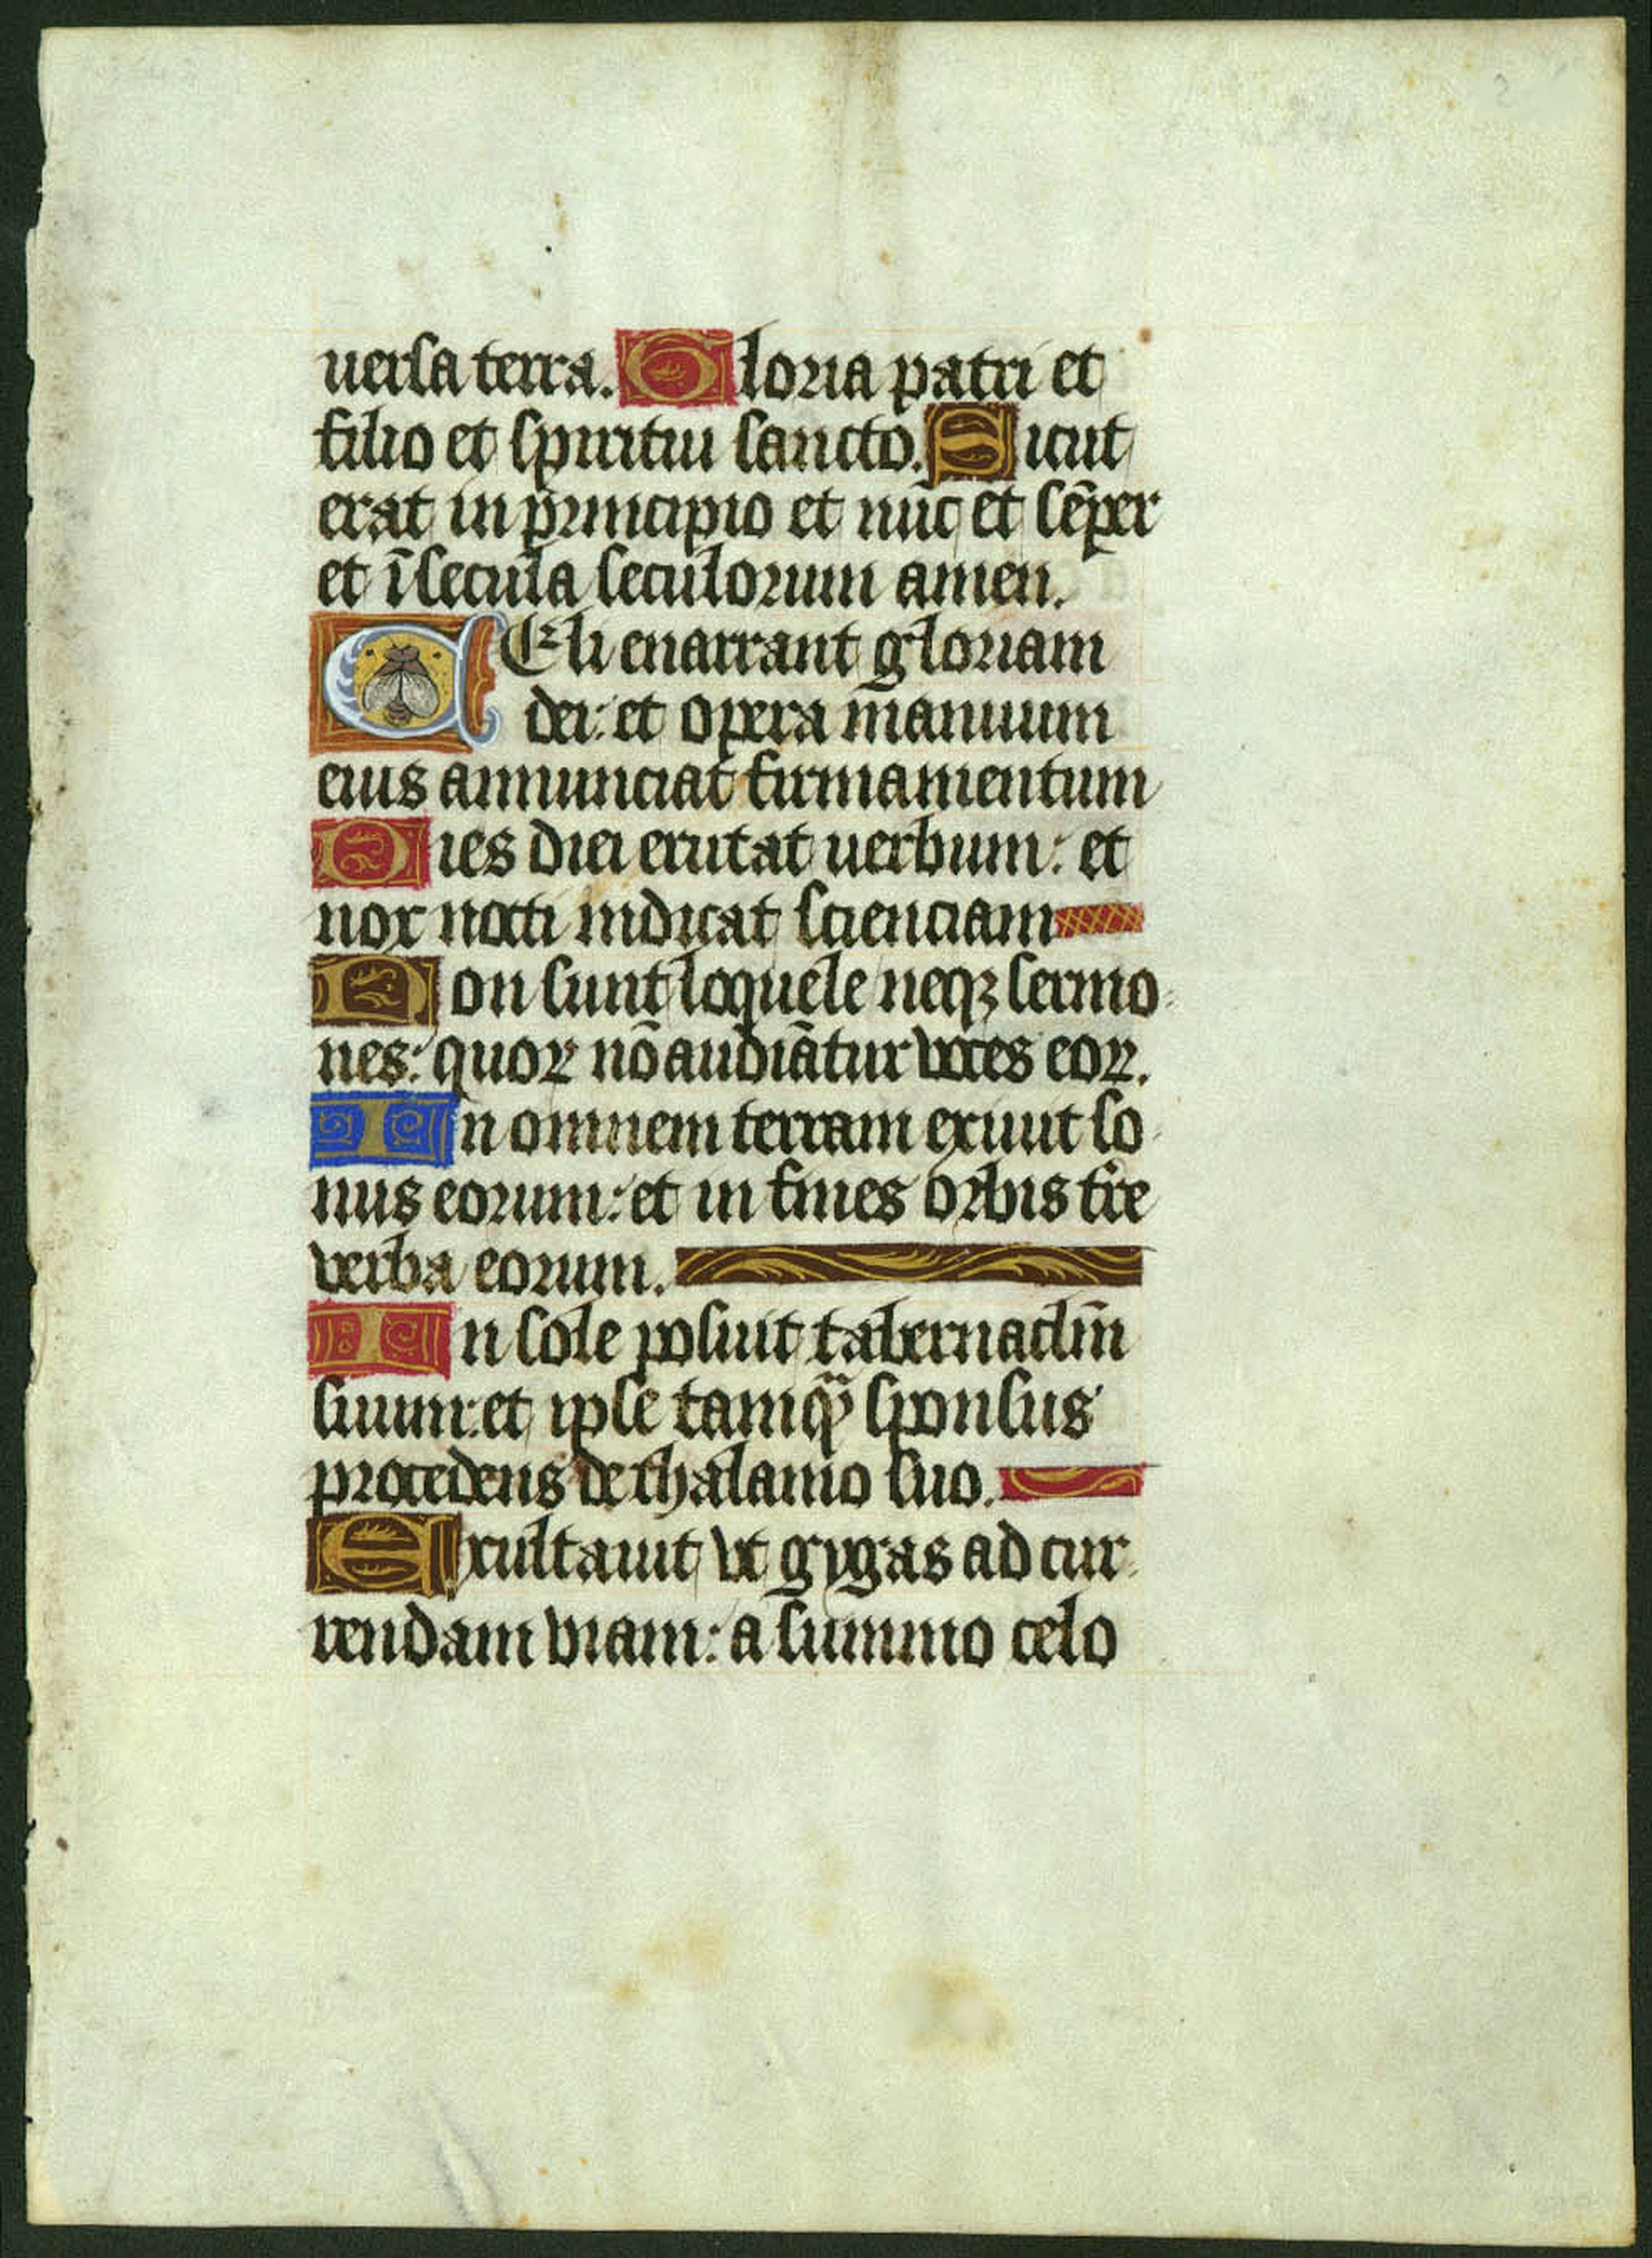 uersa terra. Gloria patri et
filio et spiritui sancto. Sicut
erat in principio et nūc et sēper
et ī secula seculorum amen.
CEli enarrant gloriam
dei: et opera manuum
eius annunciat firmamentum
Dies diei erutat uerbum: et
nox nocti indicat scienciam
Non sunt loquele neqꝫ sermo
nes: quoꝝ nō audiātur voces eoꝝ.
In omnem terram exiuit so
nus eorum: et in fines orbis tr̄e
verba eorum.
In sole posuit tabernaclm̄
suum: et ipse tamqͣ sponsus
procedens de thalamo suo.
Exultauit vt gygas ad cur
rendam viam: a summo celo
2